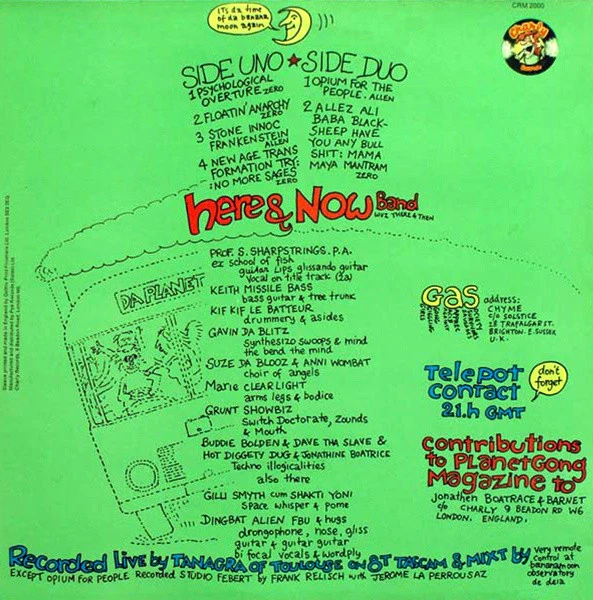 CRM 2000
ITs da time
of da banana
moon again
Charly
Records
SIDE UNO ★ SIDE DUO
1 PSYCHOLOGICAL
OVERTURE ZERO
2 FLOATIN' ANARCHY
ZERO
3 STONE INNOC
FRANKENSTEIN
ALLEN
4 NEW AGE TRANS
FORMATION TRY:
: NO MORE SAGES
ZERO
1 OPIUM FOR THE
PEOPLE. ALLEN
2 ALLEZ ALI
BABA BLACK-
SHEEP HAVE
YOU ANY BULL
SHIT: MAMA
MAYA MANTRAM
ZERO
here & NOW Band
WUZ THERE & THEN
PROF. S. SHARPSTRINGS. P.A.
ex school of fish
guidan Lips glissando guitar
Vocal on title track (2a)
KEITH MISSILE BASS
bass guitar & tree trunk
KIF KIF LE BATTEUR
drummery & asides
GAVIN DA BLITZ
synthesizo swoops & mind
the bend the mind
SUZE DA BLOOZ & ANNI WOMBAT
choir of angels
Marie CLEARLIGHT
arms legs & bodice
GRUNT SHOWBIZ
Switch Doctorate, Zounds
& Mouth
BUDDIE BOLDEN & DAVE THA SLAVE &
HOT DIGGETY DUG & JONATHINE BOATRICE
Techno illogicalities
also there
GILLI SMYTH cum SHAKTI YONI
Space whisper & pome
DINGBAT ALIEN FBU & hugs
drongophone, nose, gliss
guitar & guitar guitar
bi focal vocals & wordply
DA PLANET
Gas address:
CHYME
c/o SOLSTICE
28 TRAFALGAR ST.
BRIGHTON. E. SUSSEX
U.K.
Telepot
contact
21.h GMT
don't
forget
contributions
to PLANETGONG
Magazine to
jonathen BOATRACE & BARNET
c/o CHARLY 9 BEADON RD W6
LONDON. ENGLAND,
Recorded Live by TANAGRA OF TOULOUSE on 8T TASCAM & MIXT by
Very remote
control at
bananamoon
observatory
de deia
EXCEPT OPIUM FOR PEOPLE Recorded STUDIO FEBERT by FRANK RELISCH with JEROME LA PERROUSAZ